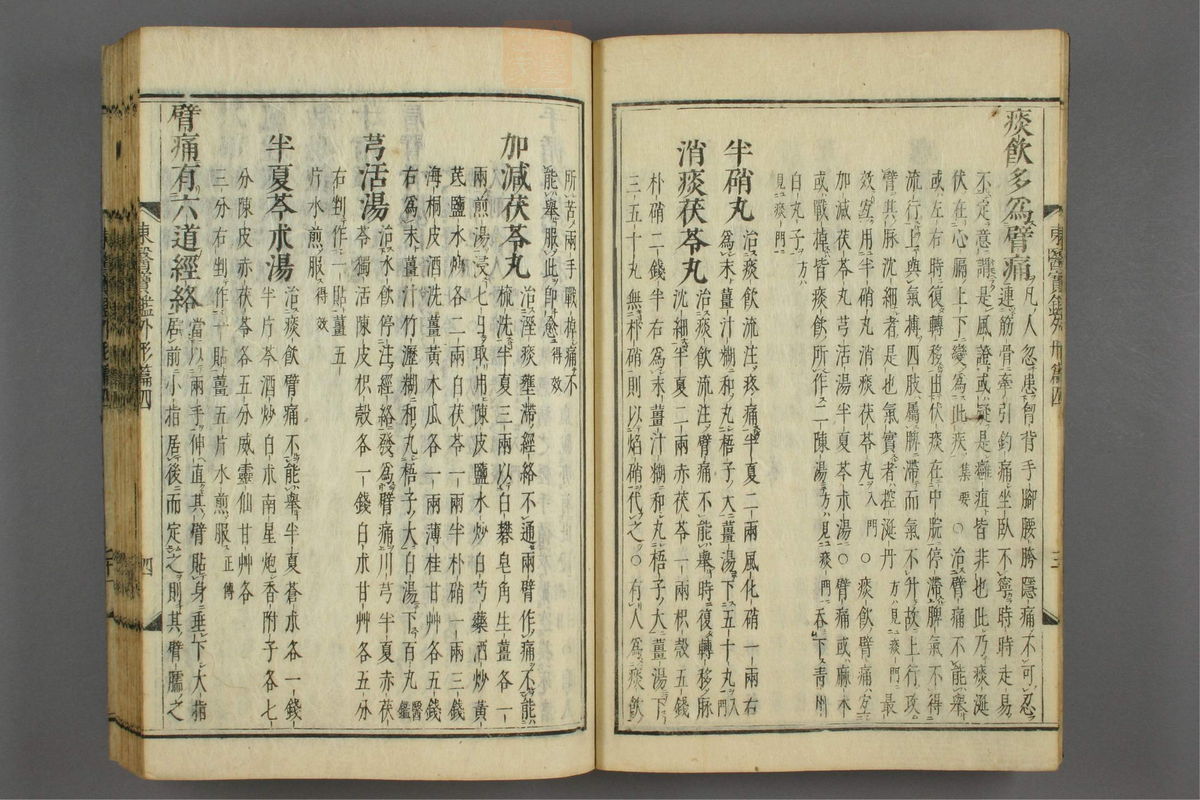 痰飲多爲臂痛 凡人忽患胷背手腳腰胯隱痛不可忍
連筋骨牽引釣痛坐臥不寧時時走易
不定意謂是風證或疑是癰疽皆非也此乃痰涎
伏在心膈上下變爲此疾集要○治臂痛不能擧
或左右時復轉移由伏痰在中脘停滯脾氣不得
流行上與氣搏四肢屬脾滯而氣不升故上行攻
臂其脉沈細者是也氣實者控涎丹方見痰門最
效宜用半硝丸消痰茯苓丸入門○痰飲臂痛宜
加減茯苓丸芎活湯半夏芩朮湯○臂痛或麻木
或戰掉皆痰飲所作二陳湯方見痰門呑下靑州
白丸子方
見痰門
半硝丸 治痰飲流注疼痛半夏二兩風化硝一兩右
爲末薑汁糊和丸梧子大薑湯下五十丸入門
消痰茯苓丸 治痰飲流注臂痛不能擧時復轉移脉
沈細半夏二兩赤茯苓一兩枳殼五錢
朴硝二錢半右爲末薑汁糊和丸梧子大薑湯下
三五十丸無朴硝則以焰硝代之○有人爲痰飲
東醫寶鑑外形篇四
三
所苦兩手戰掉痛不
能擧服此卽愈得效
加減茯苓丸 治溼痰壅滯經絡不通兩臂作痛不能
梳洗半夏三兩以白礬皂角生薑各一
兩煎湯浸七日取用陳皮鹽水炒白芍藥酒炒黃
芪鹽水炒各二兩白茯苓一兩半朴硝一兩三錢
海桐皮酒洗薑黃木瓜各一兩薄桂甘艸各五錢
右爲末薑汁竹瀝糊和丸梧子大白湯下百丸醫鑑
芎活湯 治水飲停注經絡發爲臂痛川芎半夏赤茯
苓獨活陳皮枳殼各一錢白朮甘艸各五分
右剉作一貼薑五
片水煎服得效
半夏芩朮湯 治痰飲臂痛不能擧半夏蒼朮各一錢
半片芩酒炒白朮南星炮香附子各七
分陳皮赤茯苓各五分威靈仙甘艸各
三分右剉作一貼薑五片水煎服正傳
臂痛有六道經絡 當以兩手伸直其臂貼身垂下大指
居前小指居後而定之則其臂臑之
東醫寶鑑外形篇四
四